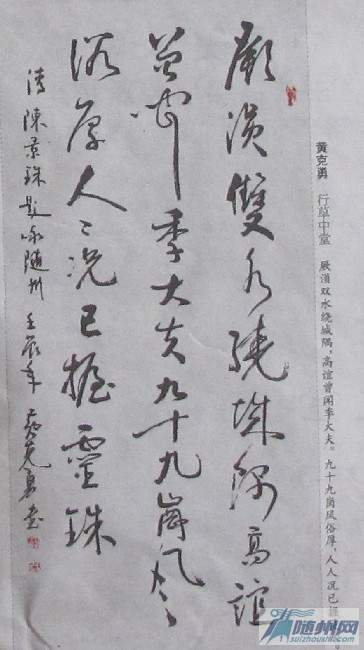 黄克勇 行草中堂 厥涢双水绕城隅,高谊曾闻季大夫。九十九岗风俗厚,人人况已
厥涢雙水繞城隅高誼
曾聞季大夫九十九崗風
俗厚人々况已握靈珠
清陳景珠題咏隨州 壬辰年 黃克勇書
随州网
suizhoushi.com